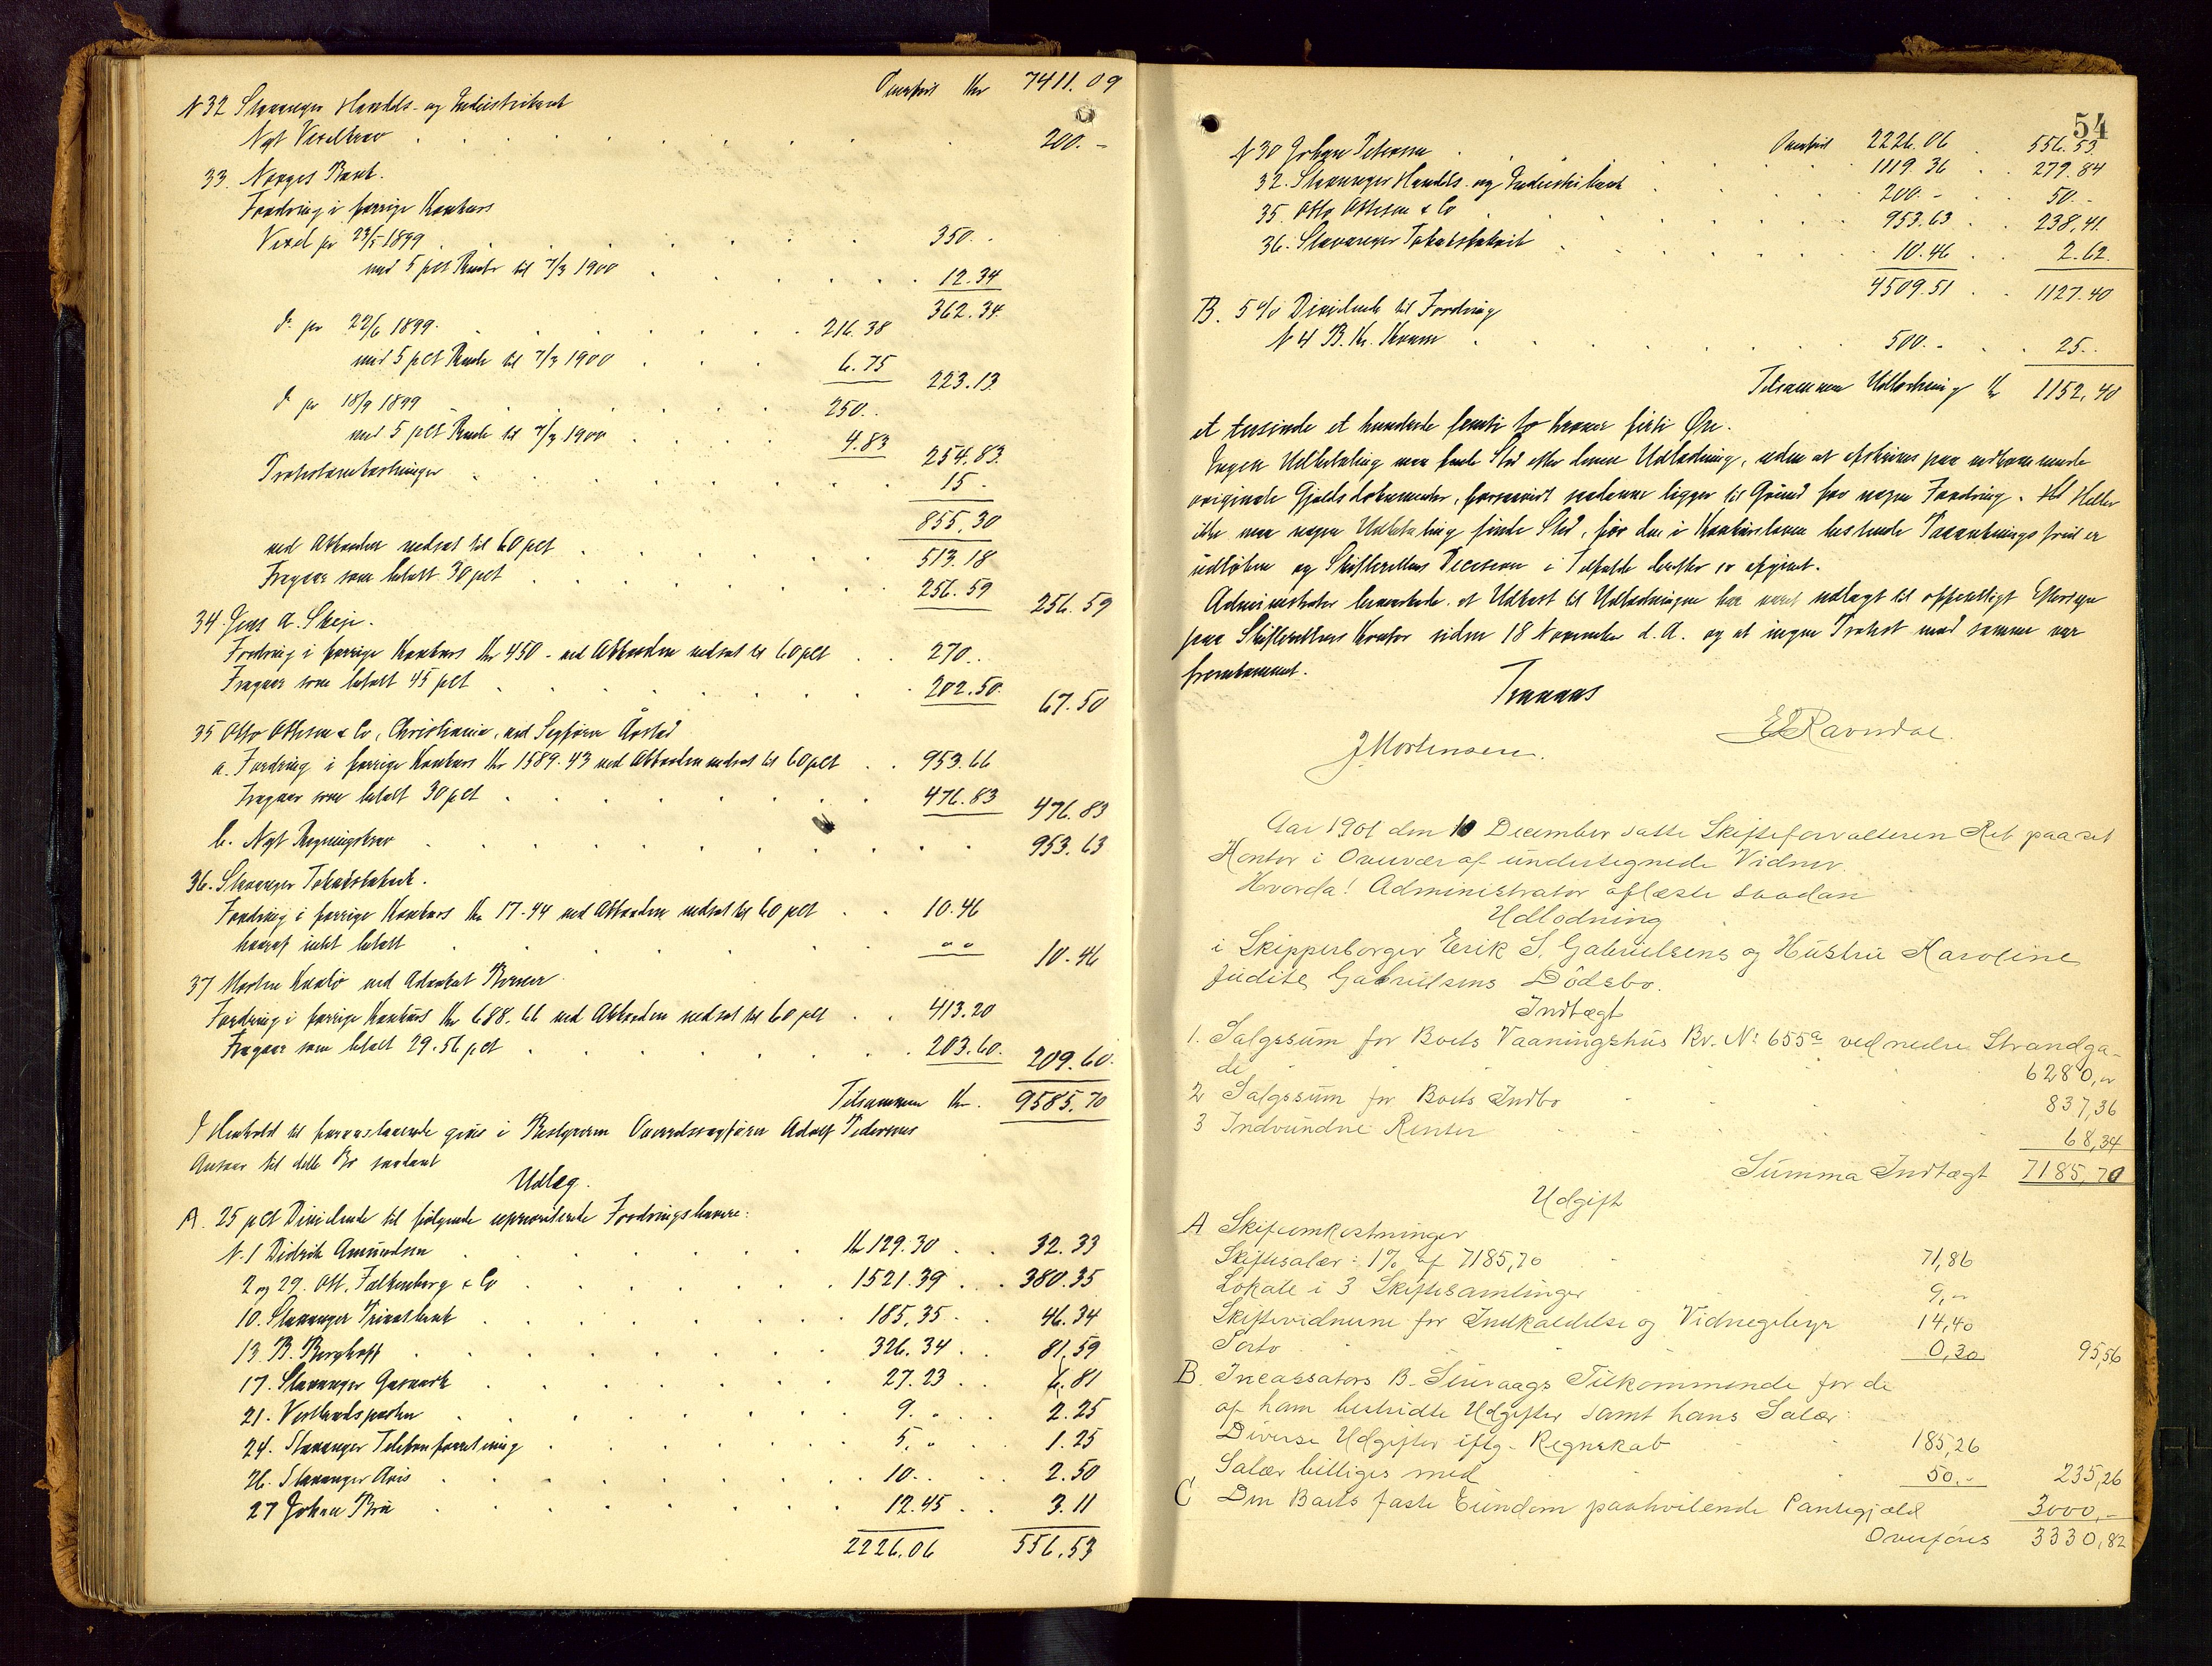 Overført Kr 7411.09
N 32 Stavanger Handels- og Industribank
Nyt Vexelkrav 200.-
33. Norges Bank.
Fordring i forrige Konkurs
Vexel pr 23/5 1899 350..
med 5 pct Rente til 7/2 1900 12.34
362.34
do pr 22/6 1899. 216.38
med 5 pct Rente til 7/2 1900 6.75 223.13
do pr 18/9 1899 250..
med 5 pct Rente til 7/2 1900 4.83 254.83.
Protestomkostninger 15.-
855.30
ved Akkorden nedsat til 60 pct 513.18
Fragaar som betalt 30 pct 256.59 256.59
34. Jens A. Skeje.
Fordring i forrige Konkurs Kr 450.- ved Akkorden nedsat til 60 pct 270..
Fragaar som betalt 45 pct 202.50. 67.50
35 Otto Ottesen & Co, Christiania, ved Sagfører Aarstad
a. Fordring i forrige Konkurs Kr 1589.43 ved Akkorden nedsat til 60 pct 953.66
Fragaar som betalt 30 pct 476.83 476.83
b. Nyt Regningskrav 953.63
36. Stavanger Tobaksfabrik.
Fordring i forrige Konkurs Kr 17.44 ved Akkorden nedsat til 60 pct 10.46
hvoraf intet betalt " " 10.46
37 Morten ved Advokat Berner
Fordring i forrige Konkurs Kr 688.66 ved Akkorden nedsat til 60 pct 413.20
Fragaar som betalt 29.56 pct 203.60. 209.60.
Tilsammen Kr. 9585.70
I Henhold til foranstaaende gives i Bestyreren Overretssagfører Adolf Pedersens
Ansvar til dette Bo saadant
Udlæg.
A. 25 pct Dividende til følgende uprioriterede Fordringshavere:
N. 1 Didrik Amundsen Kr 129.30 32.33
2 og 29. Ott. Falkenberg & Co 1521.39 380.35
10. Stavanger Privatbank 185.35 46.34
13. B. Berghoff 326.34 81.59
17. Stavanger Gasværk 27.23 6.81
21. Vestlandsposten 9. " 2.25
24. Stavanger Telefonforretning 5. " 1.25
26. Stavanger Avis 10.. 2.50
27 Johan Bru 12.45 3.11
2226.06 556.53
54
Overført 2226.06 556.53
N 30 Johan Petersen 1119.36 279.84
32. Stavanger Handels- og Industribank 200.- 50.-
35. Otto Ottesen & Co 953.63 238.41.
36. Stavanger Tobaksfabrik 10.46 2.62.
4509.51 1127.40
B. 5 % Dividende til Fordring
N 4 B. Kr. 500.- 25..
Tilsammen Udlodning Kr 1152,40
et tusinde et hundrede femti to Kroner firti Øre.
Ingen Udbetaling maa finde Sted efter denne Udlodning, uden at afskrives paa vedkommende
originale Gjeldsdokumenter, forsaavidt saadanne ligger til Grund for nogen Fordring. Ei Heller
ikke maa nogen Udbetaling finde Sted, før den i Konkursloven bestemte Paaankningsfrist er
udløben og Skifterettens Decision i Tilfælde derefter er afgivet.
Administrator bemærkede, at Udkast til Udlodningen har været udlagt til offentligt Eftersyn
paa Skifterettens Kontor siden 18 November d. A. og at ingen Protest mod samme var
fremkommet.
Tranaas
J Mortensen. E Ravndal.
Aar 1901 den 10 December satte Skifteforvalteren Ret paa sit
Kontor i Overvær af undertegnede Vidner.
Hvorda! Administrator aflæste saadan
Udlodning
i Skipperborger Eerik S. Gabrielsens og Hustru Karoline
Judite Gabrielsens Dödsbo.
Indtægt
1. Salgssum for Boets Vaaningshus Br. No 655a ved nedre Strandga-
de 6280,"
2 Salgssum for Boets Indbo 837,36
3 Indvundne Renter 68,34
Summa Indtægt 7185,70
Udgift
A Skifteomkostninger
Skiftesalær: 1% af 7185,70 71,86
Lokale i 3 Skiftesamlinger 9,-
Skiftevidnerne for Indkaldelse og Vidnegebyr 14,40
Porto 0,30 95,56
B. Incassators B. Tilkommende for de
af ham bestridte Udgifter samt hans Salær:
Diverse Udgifter iflg. Regnskab 185,26
Salær billiges med 50,- 235,26
C Den Boets faste Eiendom paahvilende Pantegjæld 3000,-
Overføres 3330,82